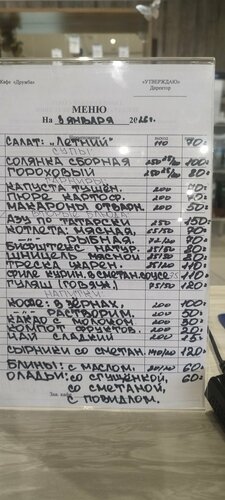 Кафе «Дружба»
«УТВЕРЖДАЮ»
Директор
МЕНЮ
На 9 ЯНВАРЯ 20
САЛАТ: „ЛЕТНИЙ" 110 70=
СУПЫ
СОЛЯНКА СБОРНАЯ 100=
ГОРОХОВЫЙ 80=
ГАРНИРЫ
КАПУСТА ТУШЕН. 200
ПЮРЕ КАРТОФ. 200
МАКАРОНЫ ОТВАРН. 200
ВТОРЫЕ БЛЮДА
АЗУ ПО ТАТАРСКИ 150=
КОТЛЕТА: МЯСНАЯ, 90=
-"- РЫБНАЯ. 90=
БИФШТЕКС НАТУР.
ШНИЦЕЛЬ МЯСНОЙ 80=
ТРЕСКА ЖАРЕН. 110=
ФИЛЕ КУРИН. В СМЕТАН. СОУСЕ 110=
ГУЛЯШ (ГОВЯЖ.) 75/50 120=
НАПИТКИ
КОФЕ: В ЗЕРНАХ, 200 100=
-"- РАСТВОРИМ. 200 50=
КАКАО С МОЛОКОМ 200
КОМПОТ ФРУКТОВ. 200
ЧАЙ СЛАДКИЙ 200 15=
СЫРНИКИ СО СМЕТАН. 120=
БЛИНЫ: С МАСЛОМ, 60=
ОЛАДЬИ: СО СГУЩЁНКОЙ, 60=
СО СМЕТАНОЙ,
С ПОВИДЛОМ.
Зав.